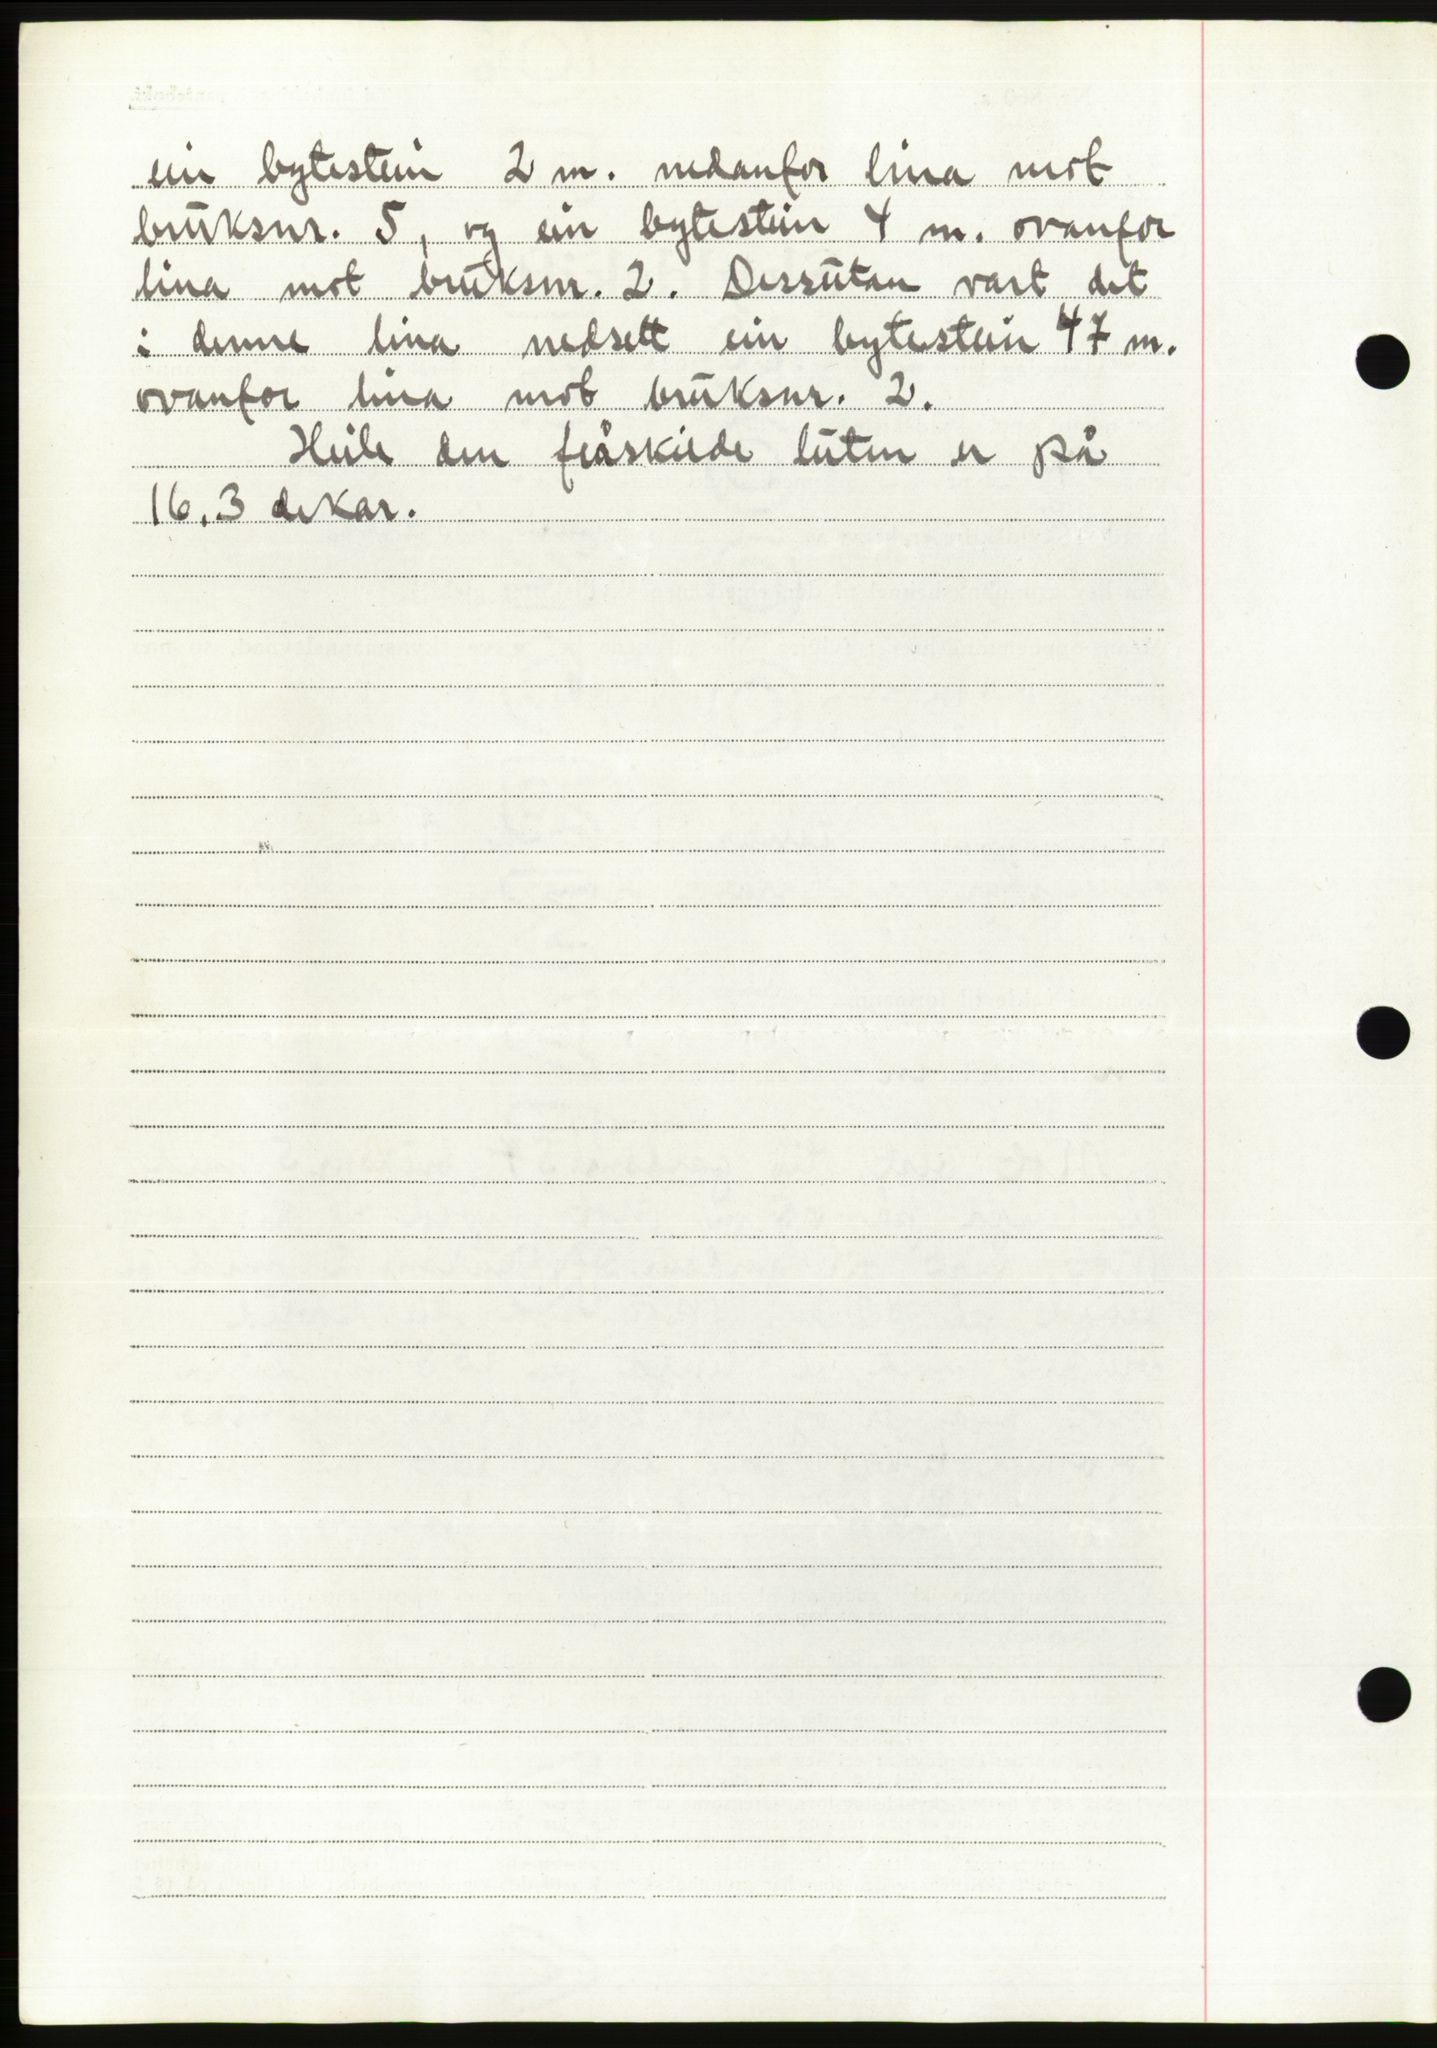 ein bytestein 2 m. nedanfor lina mot
bruksnr. 5, og ein bytestein 4 m. ovanfor
lina mot bruksnr. 2. Dessutan vart det
i denne lina nedsett ein bytestein 47 m.
ovanfor lina mot bruksnr. 2.
Heile den fråskilde luten er på
16,3 dekar.